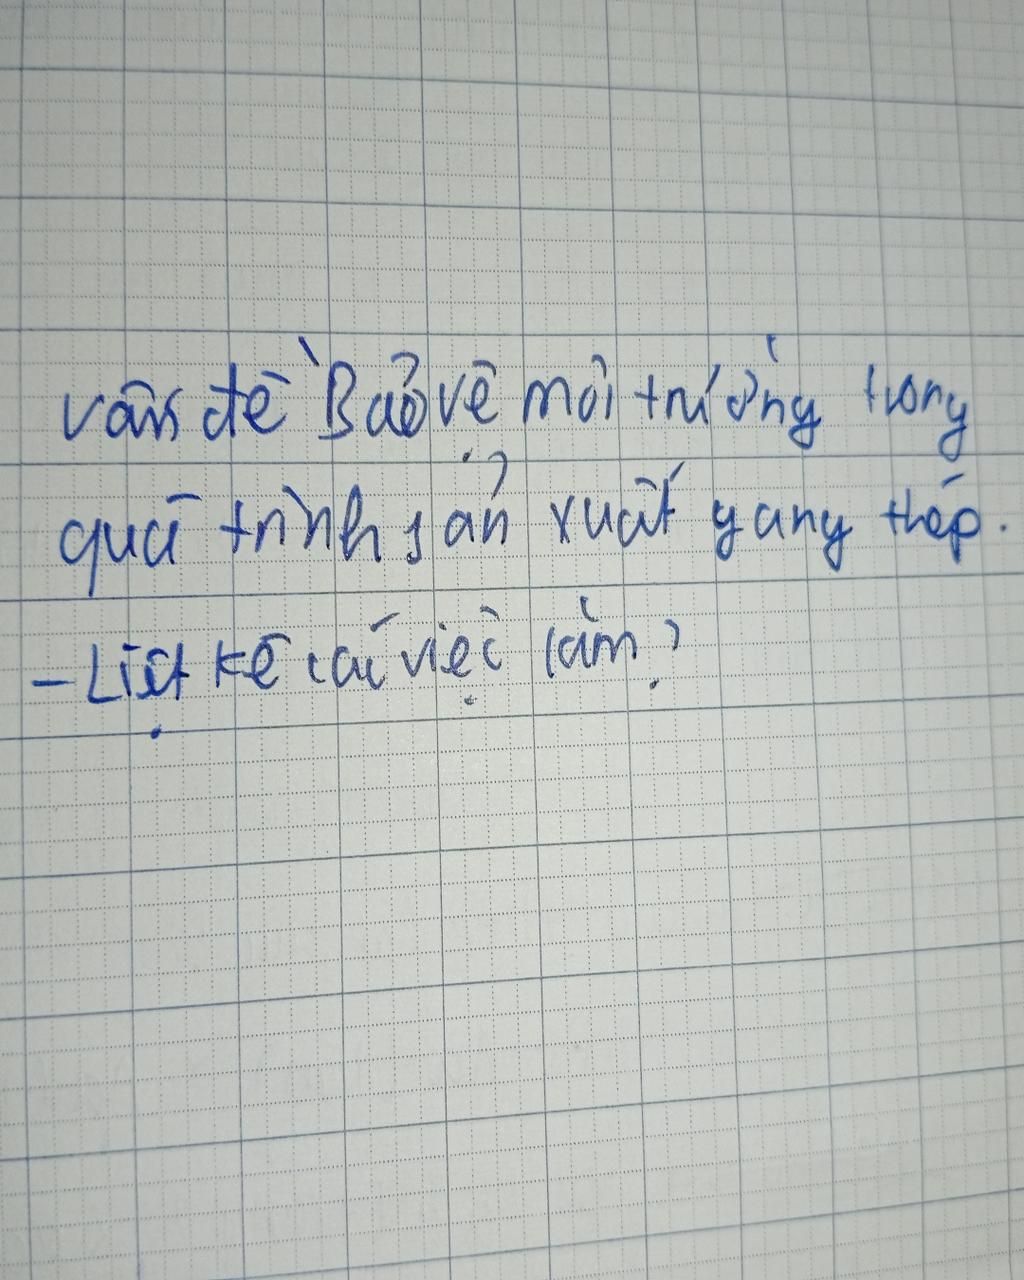 vấn đề Bảo vệ môi trường trong
quá trình sản xuất gang thép.
- Liệt kê các việc làm?